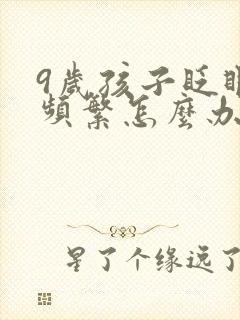 9歲孩子眨眼
頻繁怎麼办
星了个缘远了